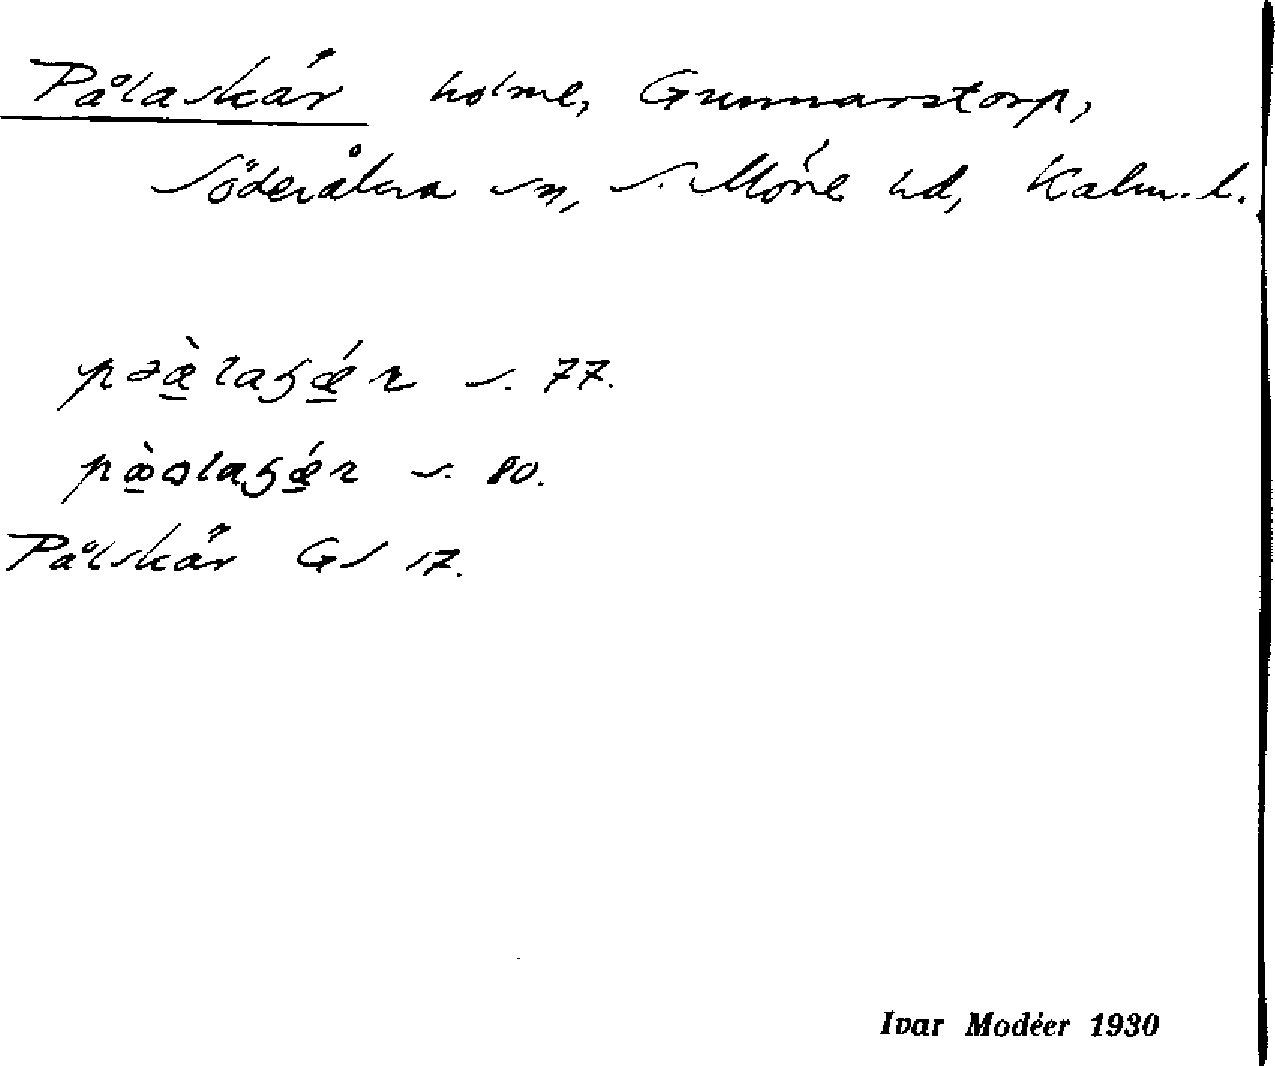 Pålaskär holme, Gunnarstorp,
Söderåkra sn, S. Möre hd, Kalm. l.
s. 77.
s. 80.
Pålskär GS 17.
Ivar Modéer 1930